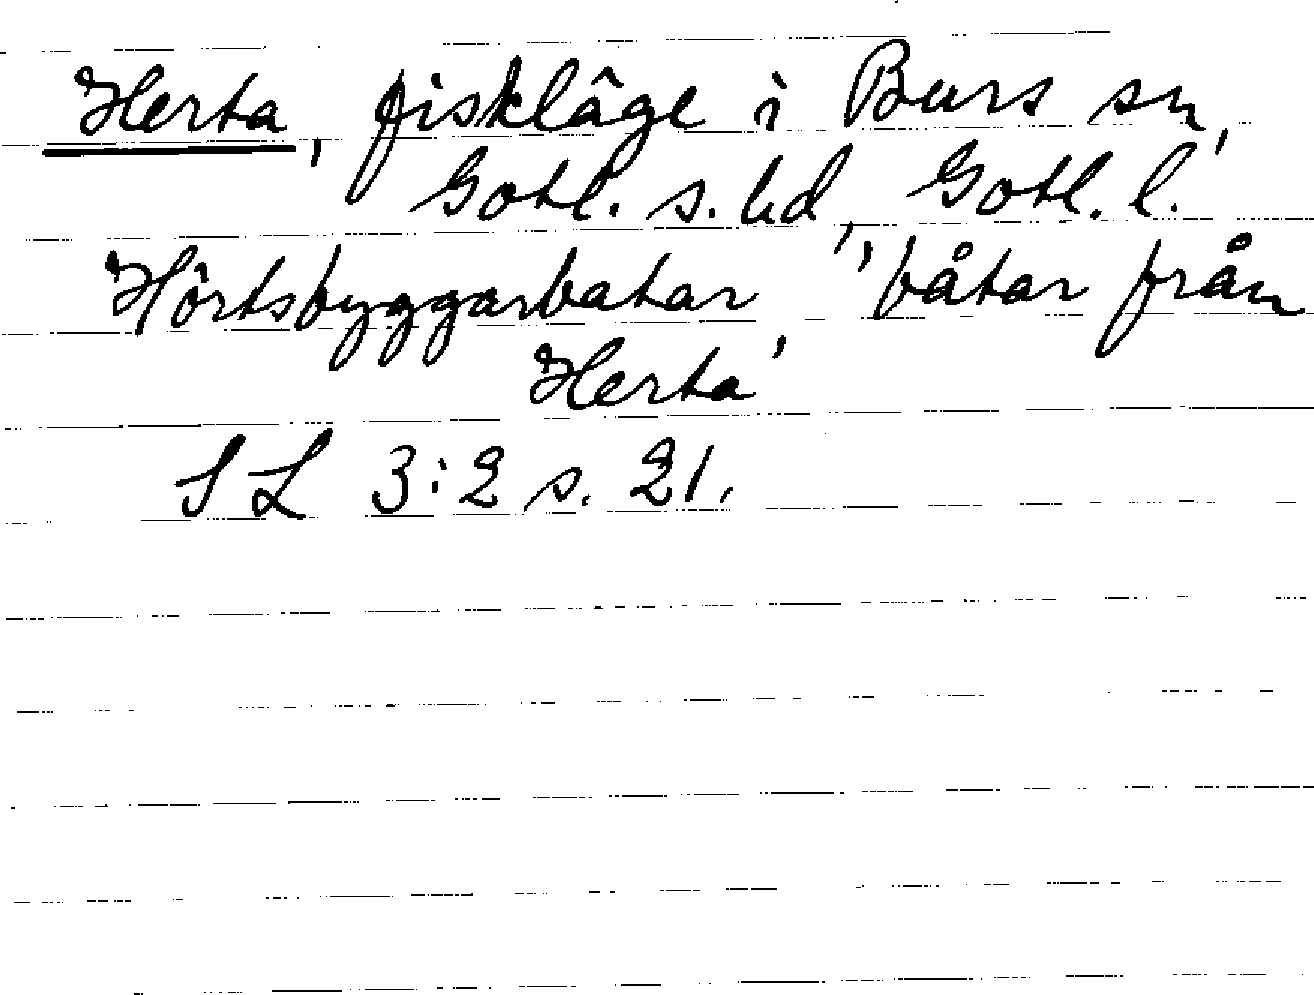 Herta, fiskläge i Burs sn,
Gotl. s. hd, Gotl. l.
Hörtsbyggarbatar, 'båtar från
Herta'
SL 3:2 s. 21.